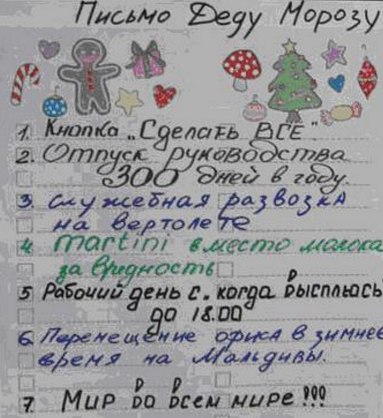 Письмо Деду Морозу
1. Кнопка „Сделать ВСЕ"
2. Отпуск руководства
300 дней в году.
3. Служебная развозка
на вертолете
4. Martini вместо молока
за вредность
5 Рабочий день с. когда выспљюсь
до 18.00
6. Перемещение офиса в зимнее
время на Мальдивы.
7. Мир во всем мире!!!